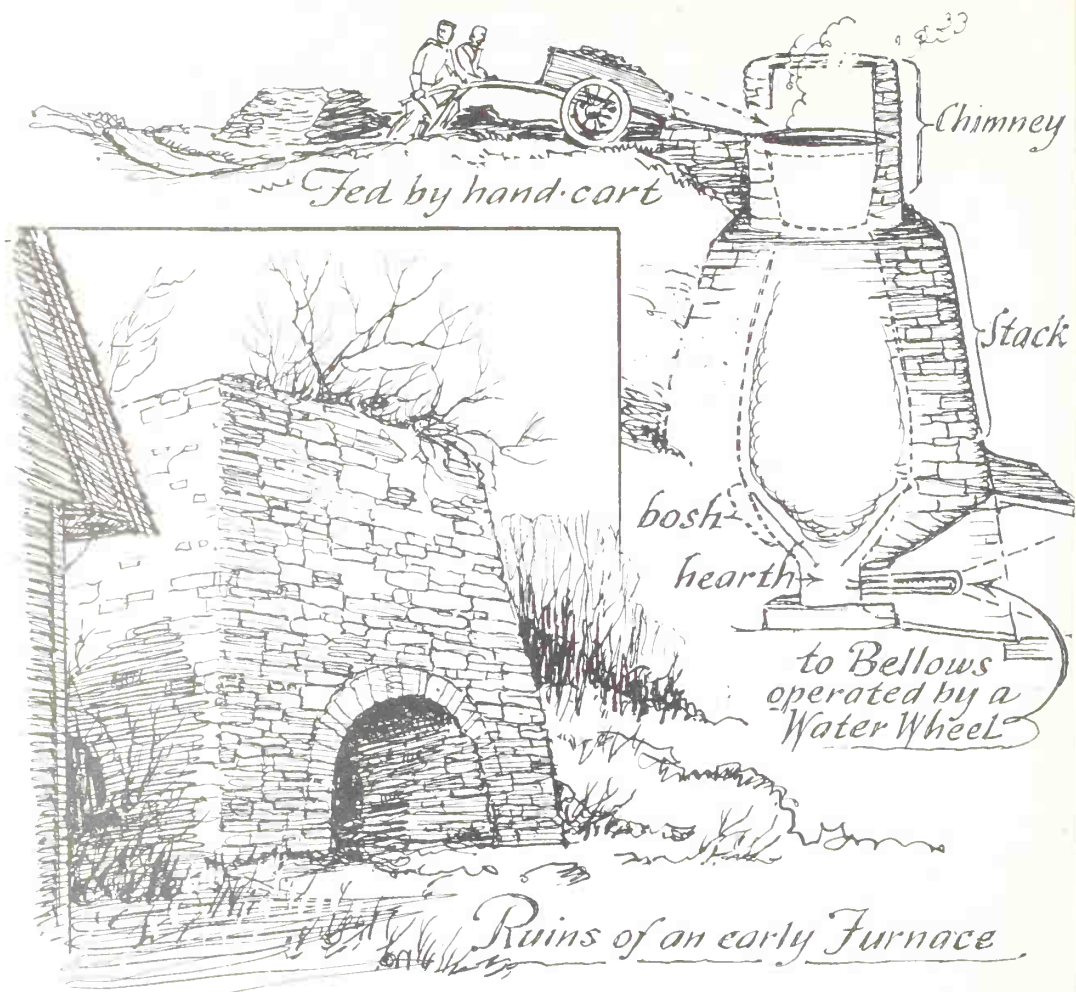 Chimney
Fed by hand-cart
Stack
bosh
hearth
to Bellows
operated by a
Water Wheel
Ruins of an early Furnace